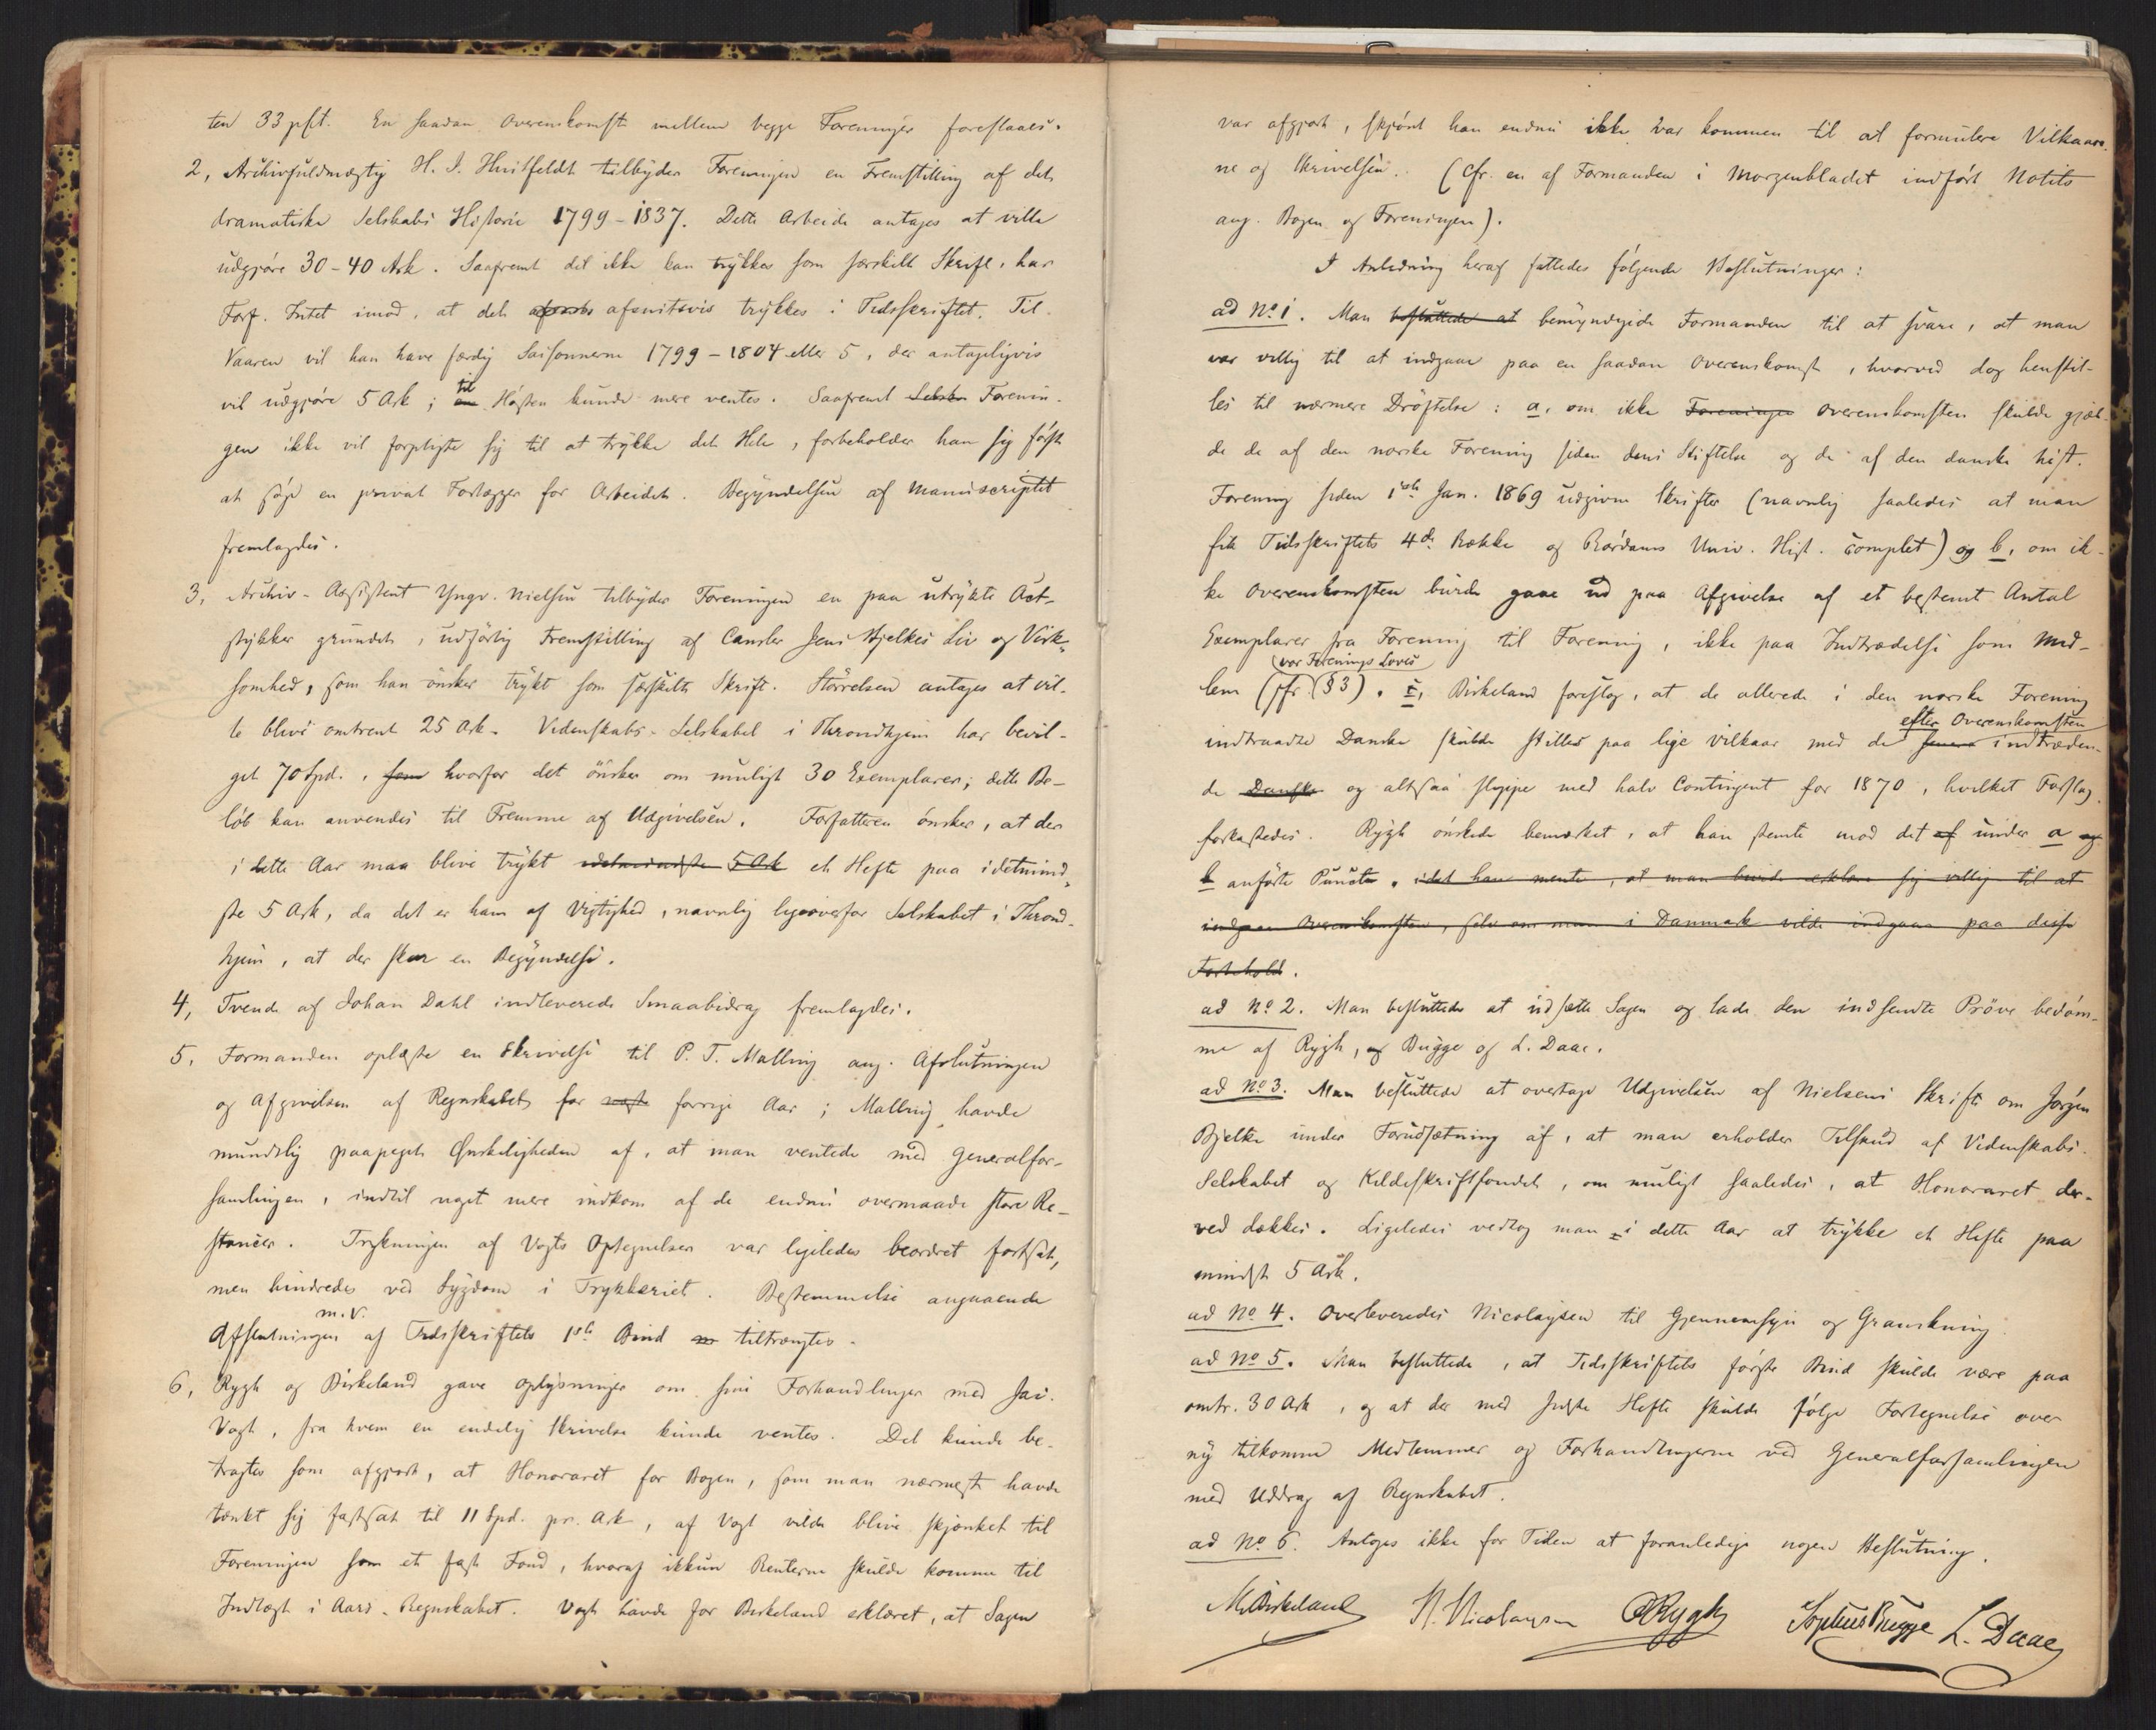 ten 33 pCt. En saadan Overenskomst mellem begge Foreninger foreslaaes.
2, Archivfuldmægtig H. J. Huitfeldt tilbyder Foreningen en Fremstilling af det
dramatiske Selskabs Historie 1799-1837. Dette Arbeide antages at ville
udgjøre 30-40 Ark. Saafremt det ikke kan trykkes som særskilt Skrift, har
Forf. Intet imod, at det afsnitsvis trykkes i Tidsskriftet. Til
Vaaren vil han have færdig Saisonnerne 1799-1804 eller 5, der antageligvis
vil udgjøre 5 Ark; til Høsten kunde mere ventes. Saafremt Selska Forenin-
gen ikke vil forpligte sig til at trykke det Hele, forbeholder han sig først
at søge en privat Forlægger for Arbeidet. Begyndelsen af Manuscriptet
fremlagdes.
3, Archiv-Assistent Yngv. Nielsen tilbyder Foreningen en paa utrykte Act-
stykker grundet, udførlig Fremstilling af Cansler Jens Bjelkes Liv og Virk-
somhed, som han ønsker trykt som særskilt Skrift. Størrelsen antages at vil-
le blive omtrent 25 Ark. Videnskabs-Selskabet i Throndhjem har bevil-
get 70 Spd., som hvorfor det ønsker om muligt 30 Exemplarer; dette Be-
løb kan anvendes til Fremme af Udgivelsen. Forfatteren ønsker, at der
i dette Aar maa blive trykt idetmindste 5 Ark et Hefte paa idetmind-
ste 5 Ark, da det er ham af Vigtighed, navnlig ligeoverfor Selskabet i Thrond-
hjem, at der skeer en Begyndelse.
4, Tvende af Johan Dahl indleverede Smaabidrag fremlagdes.
5, Formanden oplæste en Skrivelse til P. T. Malling ang. Afslutningen
og Afgivelsen af Regnskabet for forrige Aar; Malling havde
mundtlig paapeget Ønskeligheden af, at man ventede med Generalfor-
samlingen, indtil noget mere indkom af de endnu overmaade store Re-
stancer. Trykningen af Vogts Optegnelser var ligeledes beordret fortsat,
men hindredes ved Sygdom i Trykkeriet. Bestemmelse angaaende
m.v.
Afslutningen af Tidsskriftets 1ste Bind tiltrængtes.
6, Rygh og Birkeland gave Oplysninger om sine Forhandlinger med Jac.
Vogt, fra hvem en endelig Skrivelse kunde ventes. Det kunde be-
tragtes som afgjort, at Honoraret for Bogen, som man nærmest havde
tænkt sig fastsat til 11 Spd. pr. Ark, af Vogt vilde blive skjænket til
Foreningen som et fast Fond, hvoraf ikkun Renterne skulde komme til
Indtægt i Aars-Regnskabet. Vogt havde for Birkeland erklæret, at Sagen
var afgjort, skjønt han endnu ikke var kommen til at formulere Vilkaare-
ne og Skrivelsen. (Cfr. en af Formanden i Morgenbladet indført Notits
ang. Bogen og Foreningen).
I Anledning heraf fattedes følgende Beslutninger:
ad No 1. Man besluttede at bemyndigede Formanden til at svare, at man
var villig til at indgaae paa en saadan Overenskomst, hvorved dog henstil-
les til nærmere Drøftelse: a, om ikke Foreninger Overenskomsten skulde gjæl-
de de af den norske Forening siden dens Stiftelse og de af den danske hist.
Forening siden 1ste Jan. 1869 udgivne Skrifter (navnlig saaledes at man
fik Tidsskriftets 4de Række og Rørdams Univ. Hist. complet) og b, om ik-
ke Overenskomsten burde gaae ud paa Afgivelse af et bestemt Antal
Exemplarer fra Forening til Forening, ikke paa Indtrædelse som Med-
vor Forenings Loves
lem (jfr. § 3). c, Birkeland foreslog, at de allerede i den norske Forening
efter Overenskomsten
indtraadte Danske skulde stilles paa lige Vilkaar med de senere indtræden-
de Danske og altsaa slippe med halv Contingent for 1870, hvilket Forslag
forkastedes. Rygh ønskede bemærket, at han stemte mod det af under a og
b anførte Puncter, idet han mente, at man burde erklære sig villig til at
indgaa Overenskomsten, selv om man i Danmark vilde indgaa paa disse
Forbehold.
ad No 2. Man besluttede at udsætte Sagen og lade den indsendte Prøve bedøm-
me af Rygh, og Bugge og L. Daae.
ad No 3. Man besluttede at overtage Udgivelsen af Nielsens Skrift om Jørgen
Bjelke under Forudsætning af, at man erholder Tilskud af Videnskabs-
Selskabet og Kildeskriftfondet, om muligt saaledes, at Honoraret der-
ved dækkes. Ligeledes vedtog man i dette Aar at trykke et Hefte paa
mindst 5 Ark.
ad No 4. Overleveredes Nicolaysen til Gjennemsyn og Granskning.
ad No 5. Man besluttede, at Tidsskriftets første Bind skulde være paa
omtr. 30 Ark, og at der med sidste Hefte skulde følge Fortegnelse over
ny tilkomne Medlemmer og Forhandlingerne ved Generalforsamlingen
med Uddrag af Regnskabet.
ad No 6. Antoges ikke for Tiden at foranledige nogen Beslutning.
M. Birkeland N. Nicolaysen O Rygh Sophus Bugge L. Daae